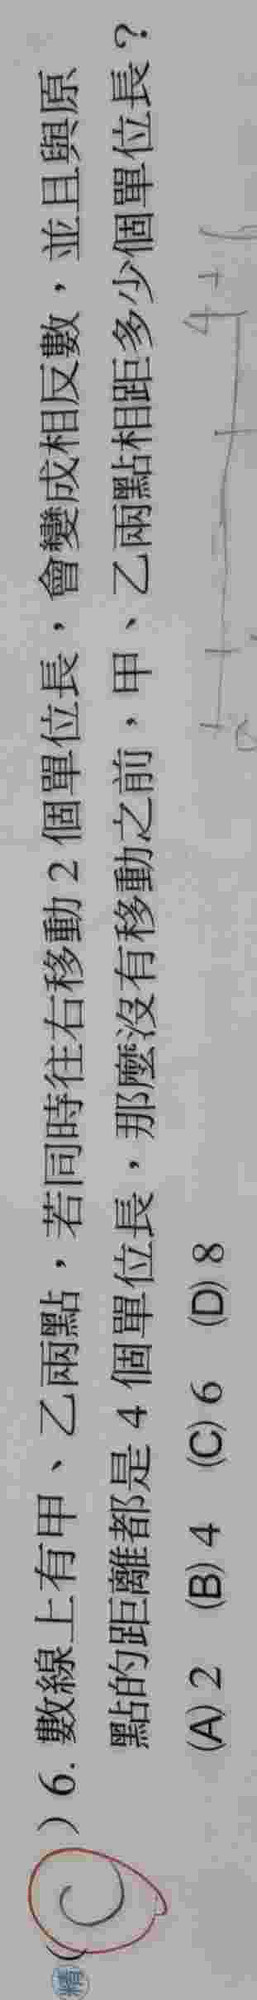 精 ( C ) 6. 數線上有甲、乙兩點，若同時往右移動 2 個單位長，會變成相反數，並且與原
點的距離都是 4 個單位長，那麼沒有移動之前，甲、乙兩點相距多少個單位長？
(A) 2 (B) 4 (C) 6 (D) 8